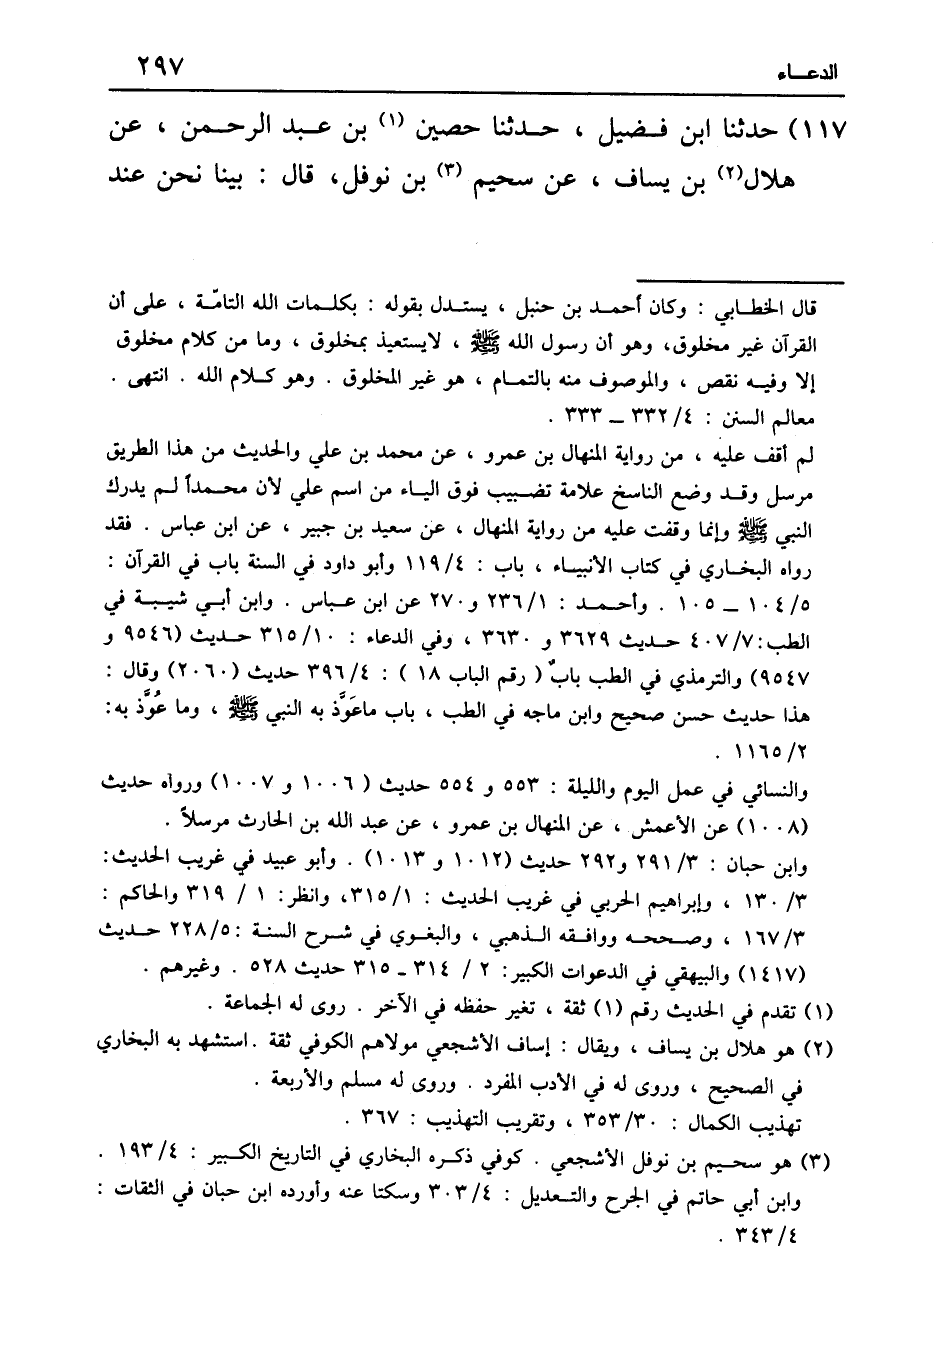 الدعـــاء ٢٩٧
١١٧) حدثنا ابن فـضيل ، حـدثنا حصين (١) بن عـبد الرحـمن ، عن
هلال(٢) بن يساف ، عن سحيم (٣) بن نوفل، قال : بينا نحن عند
قال الخطـابي : وكان أحمـد بن حنبل ، يستـدل بقوله : بكلـمات الله التامّـة ، على أن
القرآن غير مخلوق، وهو أن رسول الله ﷺ ، لايستعيذ بمخلوق ، وما من كلام مخلوق
إلا وفيـه نقص ، والموصوف منه بالتمـام ، هو غير المخلوق . وهو كـلام الله . انتهى .
معالم السنن : ٤/ ٣٣٢ ــ ٣٣٣ .
لم أقف عليه ، من رواية المنهال بن عمرو ، عن محمد بن علي والحديث من هذا الطريق
مرسل وقـد وضع الناسخ علامة تضـبيب فوق اليـاء من اسم علي لأن محـمداً لـم يدرك
النبي ﷺ وإنما وقفت عليه من رواية المنهال ، عن سعيد بن جبير ، عن ابن عباس . فقد
رواه البخـاري في كتاب الأنبيـاء ، باب : ٤/ ١١٩ وأبو داود في السنة باب في القرآن :
٥/ ١٠٤ ــ ١٠٥ . وأحـمـد : ١/ ٢٣٦ و٢٧٠ عن ابن عـباس . وابن أبـي شيبـة في
الطب: ٧/ ٤٠٧ حـديث ٣٦٢٩ و ٣٦٣٠ ، وفي الدعاء : ١٠/ ٣١٥ حـديث (٩٥٤٦ و
٩٥٤٧) والترمذي في الطب بابٌ ( رقم الباب ١٨ ) : ٤/ ٣٩٦ حديث (٢٠٦٠) وقال :
هذا حديث حسن صحيح وابن ماجه في الطب ، باب ماعَوَّذ به النبي ﷺ ، وما عُوِّذ به:
٢/ ١١٦٥ .
والنسائي في عمل اليوم والليلة : ٥٥٣ و ٥٥٤ حديث ( ١٠٠٦ و ١٠٠٧) ورواه حديث
(١٠٠٨) عن الأعمش ، عن المنهال بن عمرو ، عن عبد الله بن الحارث مرسلاً .
وابن حبان : ٣/ ٢٩١ و٢٩٢ حديث (١٠١٢ و ١٠١٣) . وأبو عبيد في غريب الحديث:
٣/ ١٣٠ ، وإبراهيم الحربي في غريب الحديث : ١/ ٣١٥، وانظر: ١ / ٣١٩ والحاكم :
٣/ ١٦٧ ، وصـححـه ووافقـه الـذهبي ، والبغـوي في شـرح السنة :٥/ ٢٢٨ حـديث
(١٤١٧) والبيهقي في الدعوات الكبير: ٢ / ٣١٤ ــ ٣١٥ حديث ٥٢٨ . وغيرهم .
(١) تقدم في الحديث رقم (١) ثقة ، تغير حفظه في الآخر . روى له الجماعة .
(٢) هو هلال بن يساف ، ويقال : إساف الأشجعي مولاهم الكوفي ثقة .استشهد به البخاري
في الصحيح ، وروى له في الأدب المفرد . وروى له مسلم والأربعة .
تهذيب الكمال : ٣٠/ ٣٥٣ ، وتقريب التهذيب : ٣٦٧ .
(٣) هو سحـيم بن نوفل الأشجعي . كوفي ذكـره البخاري في التاريخ الكـبير : ٤/ ١٩٣ .
وابن أبي حاتم في الجرح والتـعديل : ٤/ ٣٠٣ وسكتا عنه وأورده ابن حبان في الثقات :
٤/ ٣٤٣ .